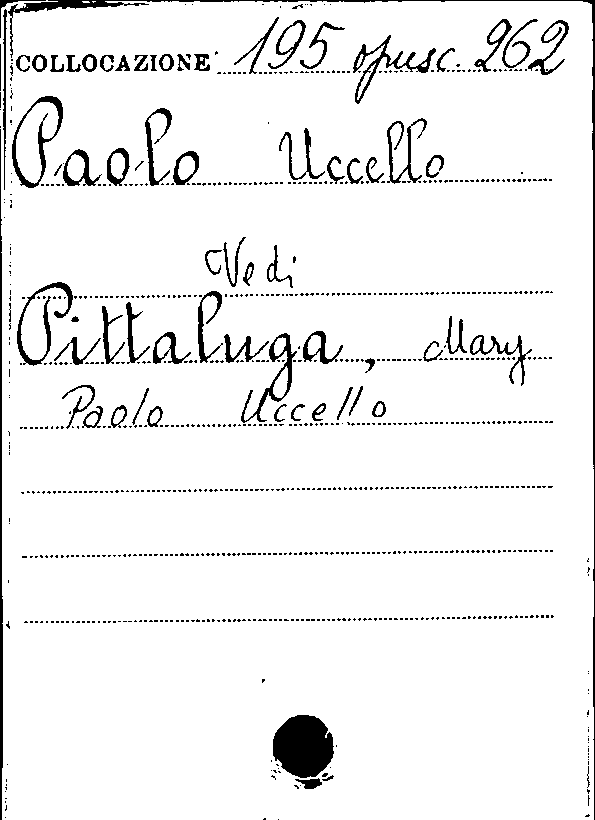 COLLOCAZIONE 195 opusc. 262
Paolo Uccello
Vedi
Pittaluga, Mary
Paolo Uccello